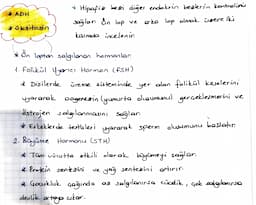 * ADH
* Oksitosin
* Hipofiz bezi diğer endokrin bezlerin kontrolünü
sağlar. Ön lop ve arka lop olmak üzere iki
kısımda incelenir.
* Ön loptan salgılanan hormonlar
1. Folikül Uyarıcı Hormon (FSH)
* Dişilerde üreme sisteminde yer alan folikül keselerini
uyararak oogenezin (yumurta oluşumunu) gerçekleşmesini ve
östrojen salgılanmasını sağlar.
* Erkeklerde testisleri uyararak sperm oluşumunu başlatır.
2. Büyüme Hormonu (STH)
* Tüm vücutta etkili olarak, büyümeyi sağlar.
* Protein sentezini ve yağ sentezini artırır.
* Çocukluk çağında az salgılanırsa cücelik, çok salgılanırsa
devlik ortaya çıkar.